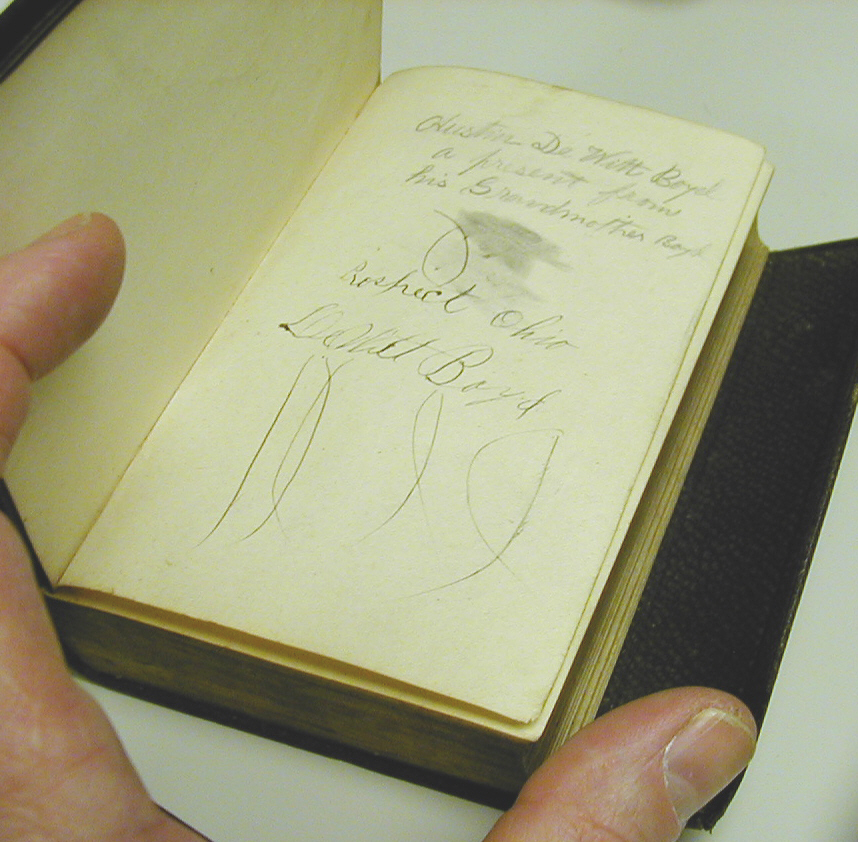 Austin De Witt Boyd
a present from
his Grandmother Boyd
Rospect Ohio
DeWitt Boyd